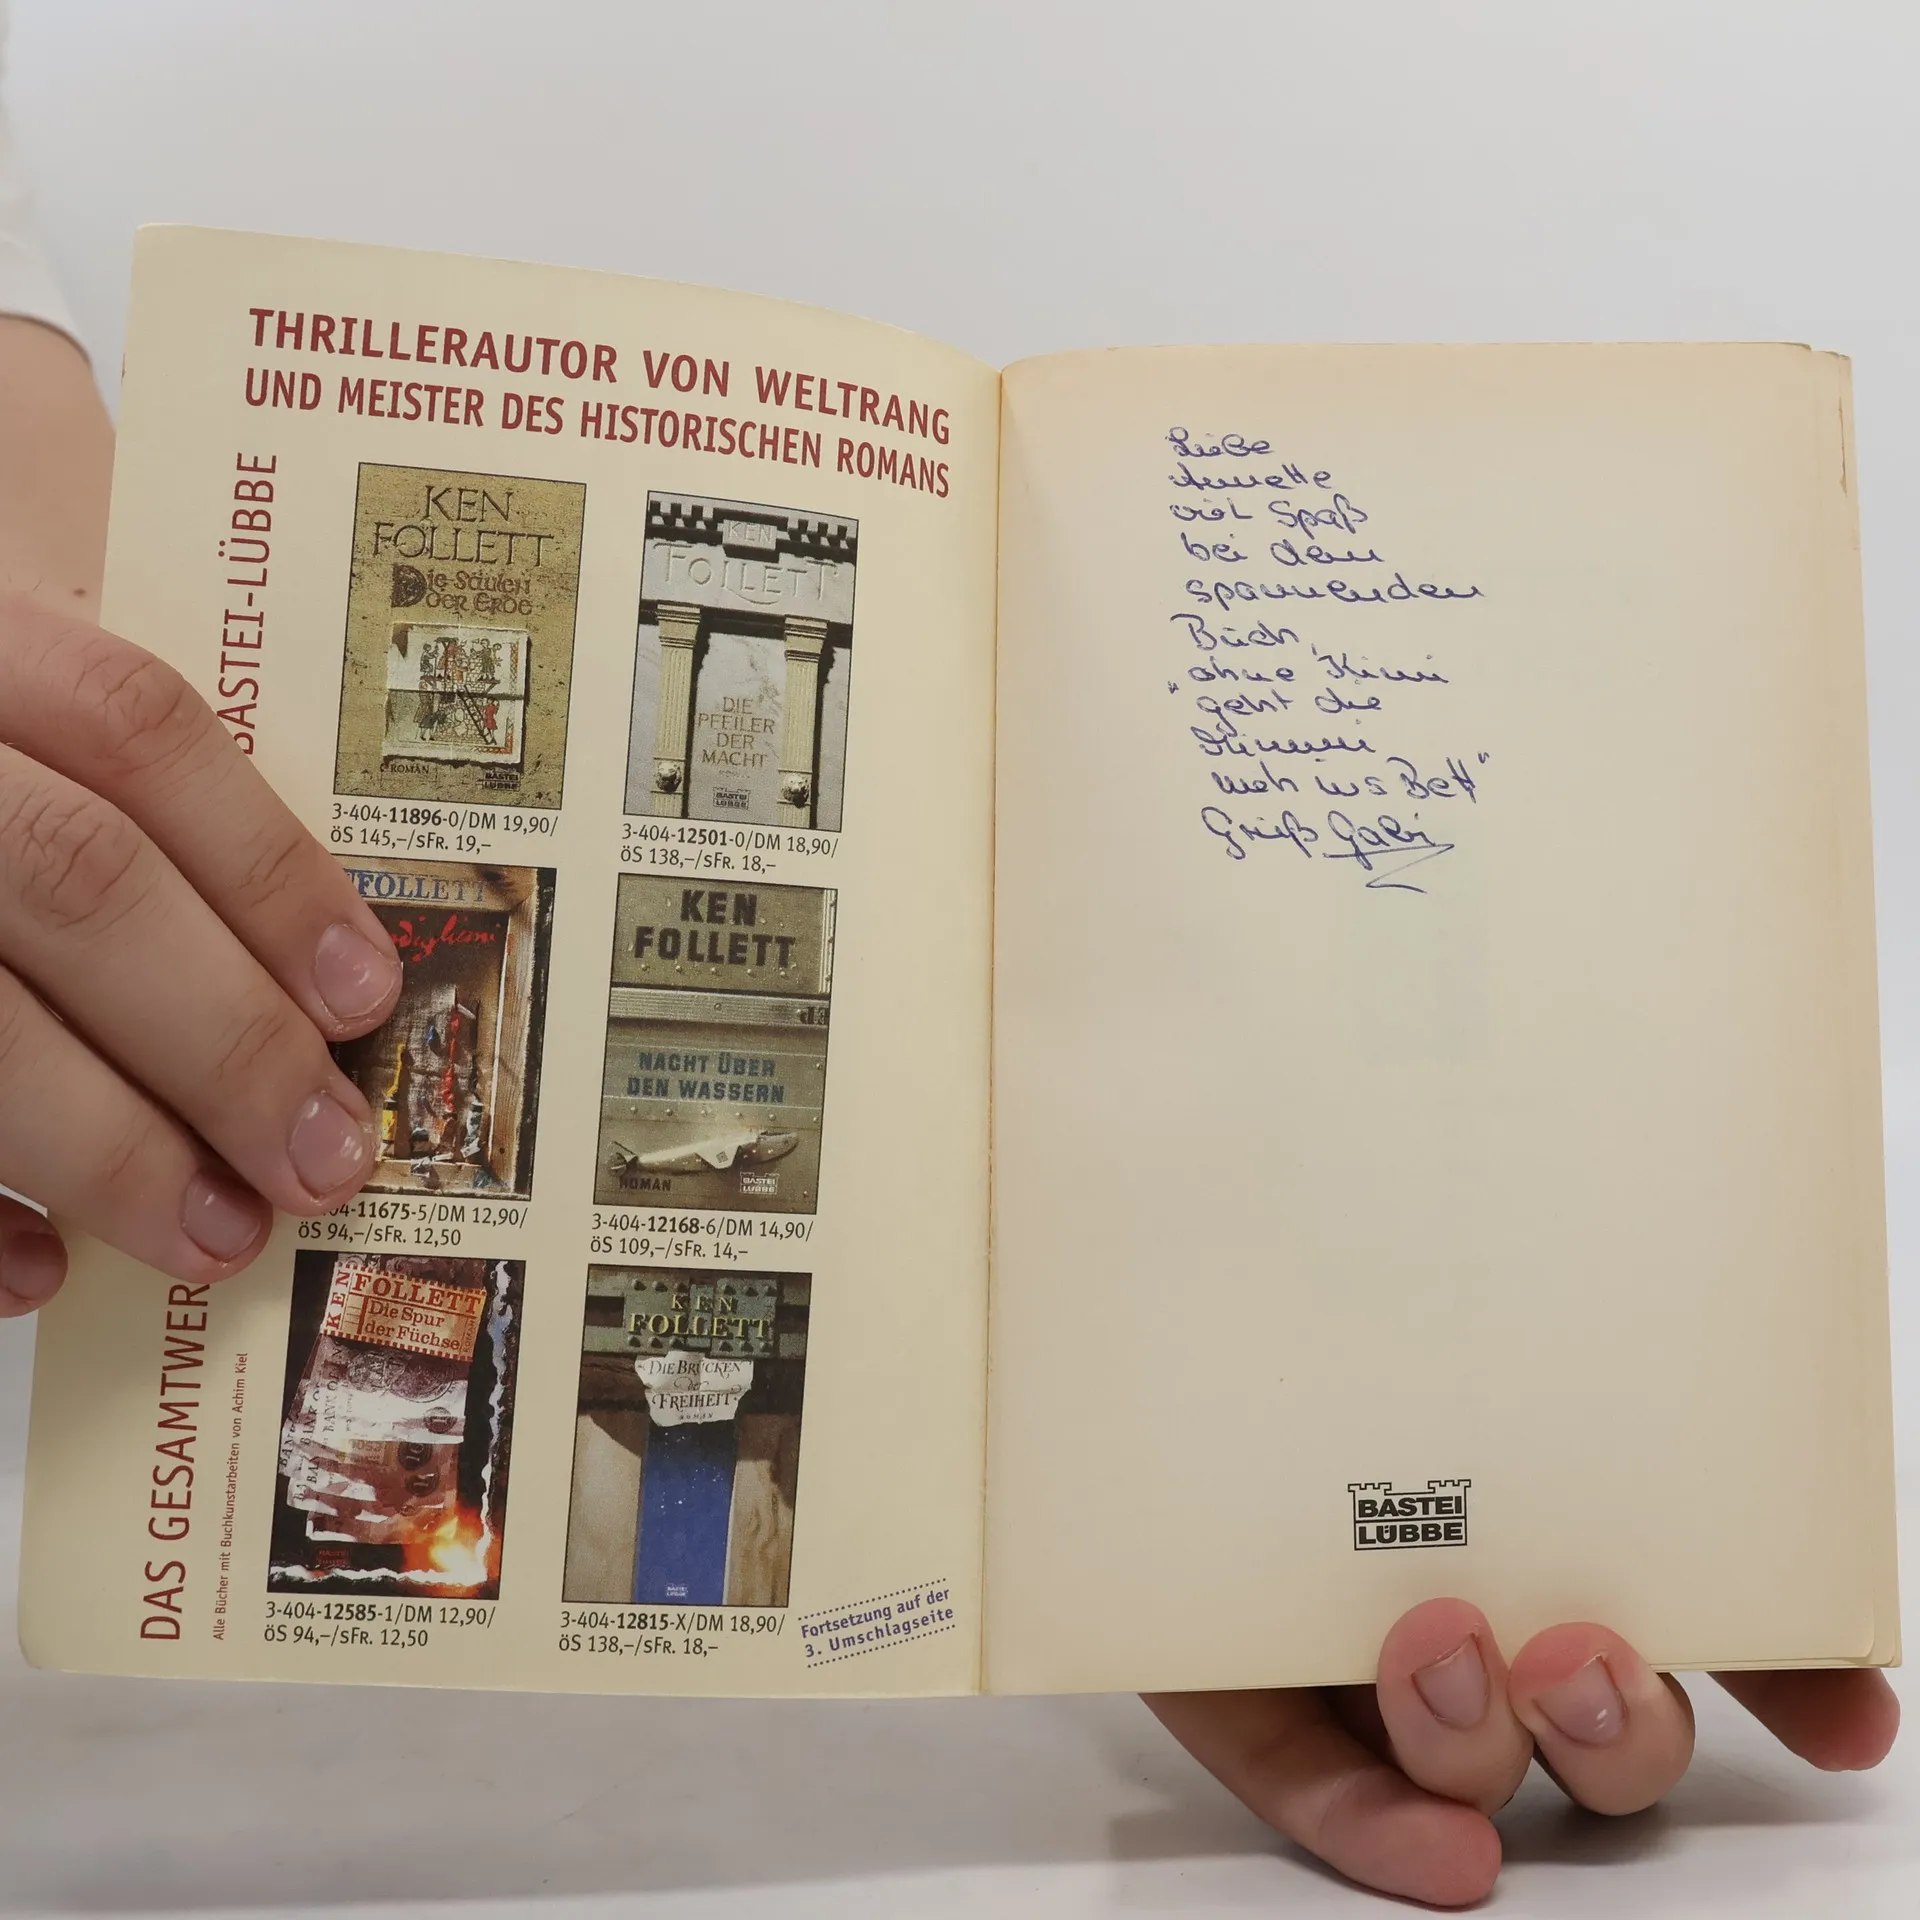 THRILLERAUTOR VON WELTRANG
UND MEISTER DES HISTORISCHEN ROMANS
BASTEI-LÜBBE
DAS GESAMTWER
Alle Bücher mit Buchkunstarbeiten von Achim Kiel
KEN
FOLLETT
Die Säulen
der Erde
ROMAN
BASTEI
LÜBBE
3-404-11896-0/DM 19,90/
öS 145,–/sFR. 19,–
KEN
FOLLETT
DIE
PFEILER
DER
MACHT
BASTEI
LÜBBE
3-404-12501-0/DM 18,90/
öS 138,–/sFR. 18,–
FOLLETT
digliani
04-11675-5/DM 12,90/
öS 94,–/sFR. 12,50
KEN
FOLLETT
NACHT ÜBER
DEN WASSERN
ROMAN
BASTEI
LÜBBE
3-404-12168-6/DM 14,90/
öS 109,–/sFR. 14,–
KEN
FOLLETT
Die Spur
der Füchse
3-404-12585-1/DM 12,90/
öS 94,–/sFR. 12,50
KEN
FOLLETT
DIE BRÜCKEN
der
FREIHEIT
ROMAN
3-404-12815-X/DM 18,90/
öS 138,–/sFR. 18,–
Fortsetzung auf der
3. Umschlagseite
Liebe
Annette
viel Spaß
bei dem
spannenden
Buch,
ohne Krimi
"geht die
Mimmi
meh ins Bett"
Gruß Gabi
BASTEI
LÜBBE